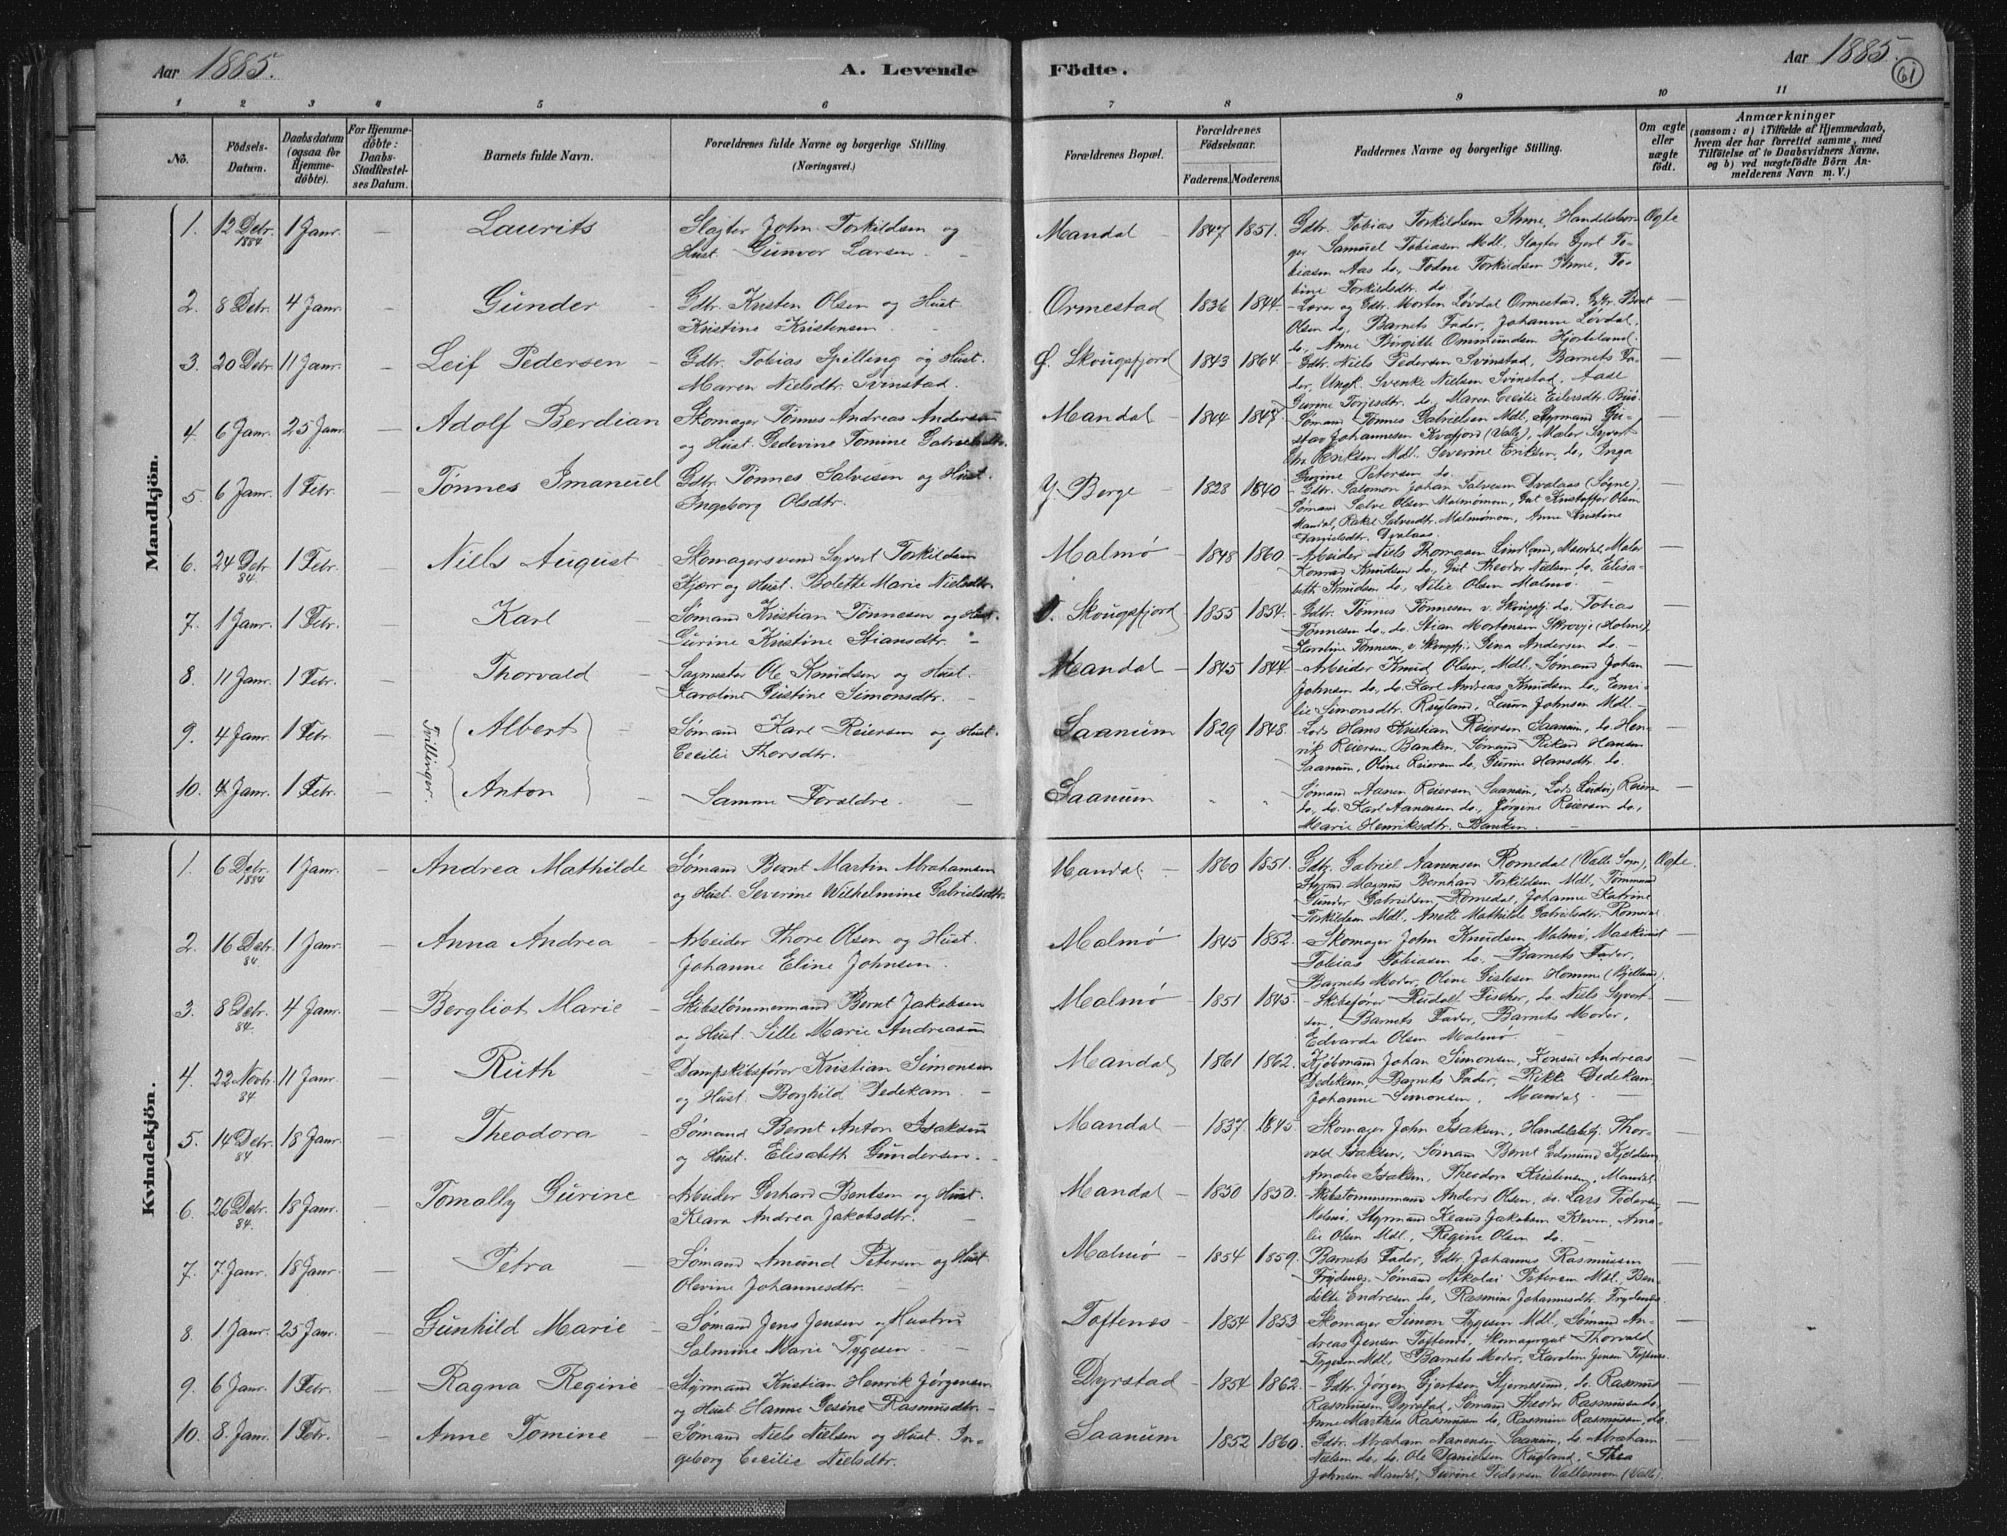 Aar 1885.
A. Levende
Födte.
Aar 1885.
61
1 2 3 4 5 6
7 8 9 10 11
No.
Födsels-
Datum.
Daabsdatum
(ogsaa for
Hjemme-
döbte).
For Hjemme-
döbte:
Daabs-
Stadfæstel-
ses Datum.
Barnets fulde Navn.
Forældrenes fulde Navne og borgerlige Stilling.
(Næringsvei.)
Forældrenes Bopæl.
Forældrenes
Födselsaar.
Faderens. Moderens.
Faddernes Navne og borgerlige Stilling.
Om ægte
eller
uægte
födt.
Anmærkninger
(saasom: a) i Tilfælde af Hjemmedaab,
hvem der har forrettet samme, med
Tilföielse af to Daabsvidners Navne,
og b) ved uægtefödte Börn An-
melderens Navn m. V.)
Mandkjön.
1. 12 Debr. 1884 1 Janr. — Laurits
Slagter John Torkildsen og
Hust. Gunvor Larsen. —
Mandal — 1847 1851.
Gdbr. Tobias Torkildsen Ihme, Handelsbor-
ger Samuel Tobiasen Mdl., Slagter Gjert To-
biasen Aas do., Todne Torkildsen Ihme, To-
bine Torkildsdtr. do.
Ægte
2. 8 Debr. 4 Janr. — Gunder —
Gdbr. Kristen Olsen og Hust.
Kristine Kristensen. —
Ormestad 1836 1844.
Morten Løvdal Ormestad,
Olsen do., Barnets Fader, Johanne Løvdal,
do., Anne Birgitte Ommundsen Hjorteland.
3. 20 Debr. 11 Janr. — Leif Pedersen —
Gdbr. Tobias Spilling og Hust.
Maren Nielsdtr. Svinstad.
Ø. Skougsfjord 1843 1864.
Gdbr. Niels Pedersen Svinstad, Barnets Fa-
der, Ungk. Svenke Nielsen Svinstad, Aase
Gurine Torjesdtr. do., Maren Cecilie Eilersdtr.
4. 6 Janr. 25 Janr. — Adolf Berdian
Skomager Tønnes Andreas Andersen
og Hust. Gedevine Tomine Gabrielsdtr.
Mandal — 1844 1847
Sømand Tønnes Gabrielsen Mdl., Styrmand Gu-
stav Johannesen Kvafjord (Valle), Maler Syvert
Chr. Eriksen Mdl., Severine Eriksen do., Inga
Petersen do.
5. 6 Janr. 1 Febr. — Tønnes Imanuel
Gdbr. Tønnes Salvesen og Hust.
Ingeborg Olsdtr.
Y. Berge — 1828 1840
Gdbr. Salomon Johan Salvesen Dvalaas (Søgne),
Sømand Salve Olsen Malmømoen, Gut Kristoffer Olsen
Mandal, Rakel Salvesdtr. Malmømoen, Anne Kristine
Danielsdtr. Dvalaas.
6. 24 Debr. 84 1 Febr. — Niels August —
Skomagersvend Syvert Torkildsen
Kjær og Hust. Bolette Marie Nielsdtr.
Malmø — 1848 1860.
Arbeider Niels Thomasen Lindland, Mandal, Maler
Konrad Knudsen do., Gut Theodor Nielsen do., Elisa-
beth Knudsen do., Nilie Olsen Malmø.
7. 1 Janr. 1 Febr. — Karl —
Sømand Kristian Tønnesen og Hust.
Gurine Kristine Stiansdtr.
V. Skougsfjord 1855 1854.
Gdbr. Tønnes Tønnesen v. Skougsfj. do. Tobias
Tønnesen do., do. Stian Mortensen Skrøvje (Holme),
Karoline Tønnesen, v. Skougsfj. Gina Andersen do. —
8. 11 Janr. 1 Febr. — Thorvald —
Sagmester Ole Knudsen og Hust.
Karoline Justine Simonsdtr.
Mandal — 1845 1844.
Arbeider Knud Olsen, Mdl., Sømand Johan
Johnsen do., do. Karl Andreas Knudsen do., Emi-
lie Simonsdtr. Rugland, Laura Johnsen Mdl. —
Tvillinger.
9. 4 Janr. 1 Febr. Albert —
Sømand Karl Reiersen og Hust.
Cecilie Thorsdtr.
Saanum 1829 1848.
Lods Hans Kristian Reiersen Saanum, do. Hen-
rik Reiersen Banken, Sømand Rikard Hansen
Saanum, Oline Reiersen do., Gurine Hansdtr. do.
10. 4 Janr. 1 Febr. Anton —
Samme Forældre. —
Saanum " "
Sømand Aanen Reiersen Saanum, Lods Reier
do., do. Karl Aanensen do., Jørgine Reiersen do.,
Marie Henriksdtr. Banken. —
Kvindekjön.
1. 6 Debr. 1884 1 Janr. — Andrea Mathilde
Sømand Bernt Martin Abrahamsen
og Hust. Severine Wilhelmine Gabrielsdtr.
Mandal — 1860 1851.
Gdbr. Gabriel Aanensen Romedal (Valle Sogn),
Styrmd. Magnus Bernhard Torkildsen Mdl., Tømmermand
Gunder Gabrielsen Romedal, Johanne Katrine
Torkildsen Mdl., Anette Mathilde Gabrielsdtr. Romedal
Ægte.
2. 16 Debr. 84. 1 Janr. — Anna Andrea —
Arbeider Thore Olsen og Hust.
Johanne Eline Johnsen.
Malmø — 1845 1852.
Skomager John Knudsen Malmø, Maskinist
Tobias Tobiasen do., Barnets Fader,
Barnets Moder, Oline Gislesen Homme (Bjelland).
3. 8 Debr. 84. 4 Janr. — Bergliot Marie —
Skibstømmermand Bernt Jakobsen
og Hust. Sille Marie Andreasen
Malmø — 1851 1845.
Skibsfører Rudolf Fischer, do. Niels Syvert-
sen, Barnets Fader, Barnets Moder,
Edvarda Olsen Malmø.
4. 22 Novbr. 84 11 Janr. — Ruth —
Dampskibsfører Kristian Simonsen
og Hust. Borghild Dedekam. —
Mandal 1861 1862.
Kjøbmand Johan Simonsen, Konsul Andreas
Dedekam, Barnets Fader, Rikke Dedekam,
Johanne Simonsen, Mandal. —
5. 14 Debr. 84 18 Janr. — Theodora —
Sømand Bernt Anton Isaksen
og Hust. Elisabeth Gundersen. —
Mandal — 1837 1845
Skomager John Isaksen, Handelsbetj. Thor-
vald Isaksen, Sømand Bernt Edmund Kjeldsen,
Amalie Isaksen, Theodora Kristensen, Mandal
6. 26 Debr. 84. 18 Janr. — Tomally Gurine
Arbeider Gerhard Bentsen og Hust.
Klara Andrea Jakobsdtr.
Mandal — 1850 1850.
Skibstømmermand Anders Olsen, do. Lars Pedersen
Malmø, Styrmand Klaus Jakobsen Kleven, Ama-
lie Olsen Mdl., Regine Olsen do. —
7. 7 Janr. 18 Janr. — Petra —
Sømand Amund Petersen og Hust
Olevine Johannesdtr.
Malmø — 1854 1859.
Barnets Fader, Gdbr. Johannes Rasmussen
Frydenes, Sømand Nikolai Petersen Mdl., Ben-
dikte Endresen do., Rasmine Johannesdtr. Frydenes
8. 1 Janr. 25 Janr. — Gunhild Marie —
Sømand Jens Jensen og Hustru
Salmine Marie Tygesen. —
Toftenes — 1854 1853
Skomager Simon Tygesen Mdl., Sømand An-
dreas Jensen Toftenes, Thorvald
Tygesen Mdl., Barnets Moder, Karoline Jensen Toftenes
9. 6 Janr. 1 Febr. — Ragna Regine —
Styrmand Kristian Henrik Jørgensen
og Hust. Hanne Gesine Rasmusdtr. —
Dyrstad — 1854 1862.
Gdbr. Jørgen Gjertsen Stjernesund, do. Rasmus
Rasmussen Dyrstad, Sømand Theodor Rasmussen do.
Anne Marthea Rasmussen do., Rasmine Rasmussen, do.
10. 8. Janr. 1 Febr. — Anne Tomine —
Sømand Niels Nielsen og Hust. In-
geborg Cecilie Nielsdtr.
Saanum — 1852 1860.
Gdbr. Abraham Aanensen Saanum, do. Abraham
Nielsen do., do. Ole Danielsen Rugland, Thea
Johnsen Mandal, Gurine Pedersen Vallemoen (Valle).